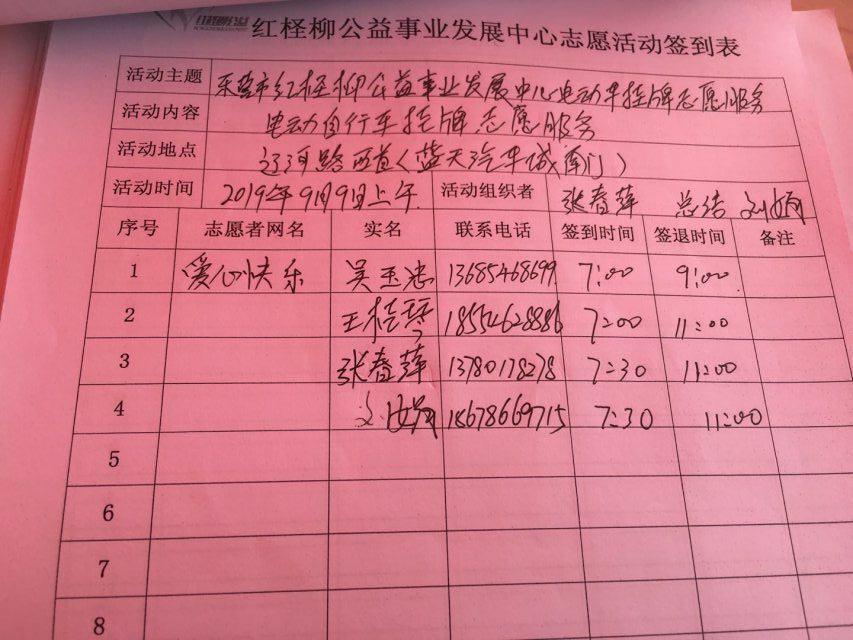 红柽柳公益事业发展中心志愿活动签到表
活动主题 东营市红柽柳公益事业发展中心电动车挂牌志愿服务
活动内容 电动自行车挂牌志愿服务
活动地点 辽河路西首(蓝天汽车城南门)
活动时间 2019年9月9日上午 活动组织者 张春萍 总结
序号 志愿者网名 实名 联系电话 签到时间 签退时间 备注
1 爱心快乐 吴玉忠 13685468699 7:00 9:00
2 王桂琴 18554628886 7:00 11:00
3 张春萍 13780178278 7:30 11:00
4 18678669715 7:30 11:00
5
6
7
8